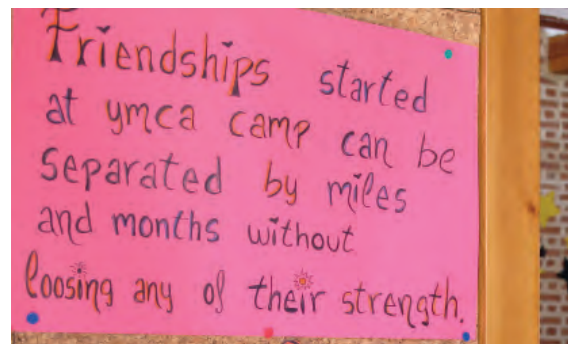 Friendships started
at ymca camp can be
separated by miles
and months without
loosing any of their strength.